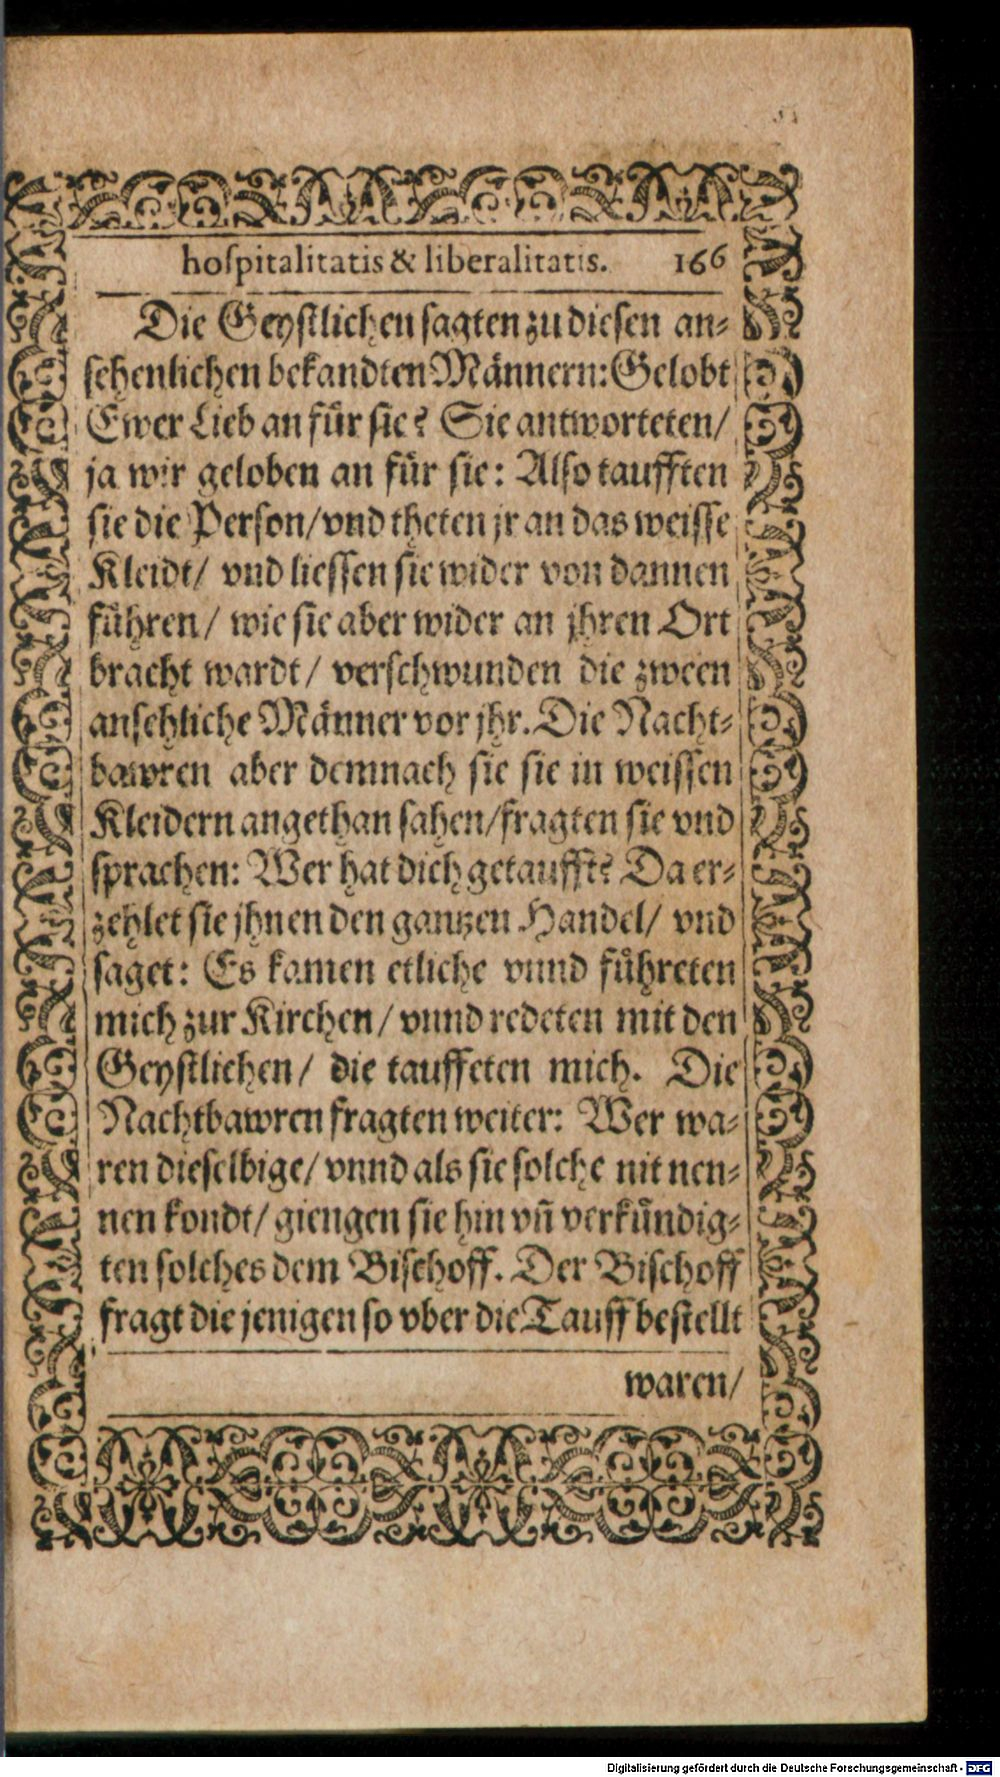 hoſpitalitatis & liberalitatis. 166
Die Geyſtlichen ſagten zu dieſen an-
ſehenlichen bekandten Männern: Gelobt
Ewer Lieb an für ſie? Sie antworteten/
ja wir geloben an für ſie: Alſo taufften
ſie die Perſon/ vnd theten jr an das weiſſe
Kleidt/ vnd lieſſen ſie wider von dannen
führen/ wie ſie aber wider an jhren Ort
bracht wardt/ verſchwunden die zween
anſehliche Männer vor jhr. Die Nacht-
bawren aber demnach ſie ſie in weiſſen
Kleidern angethan ſahen/ fragten ſie vnd
ſprachen: Wer hat dich getaufft? Da er-
zehlet ſie jhnen den gantzen Handel/ vnd
ſaget: Es kamen etliche vnnd führeten
mich zur Kirchen/ vnnd redeten mit den
Geyſtlichen/ die tauffeten mich. Die
Nachtbawren fragten weiter: Wer wa-
ren dieſelbige/ vnnd als ſie ſolche nit nen-
nen kondt/ giengen ſie hin vñ verkündig-
ten ſolches dem Biſchoff. Der Biſchoff
fragt die jenigen ſo vber die Tauff beſtellt
waren/
Digitalisierung gefördert durch die Deutsche Forschungsgemeinschaft - DFG